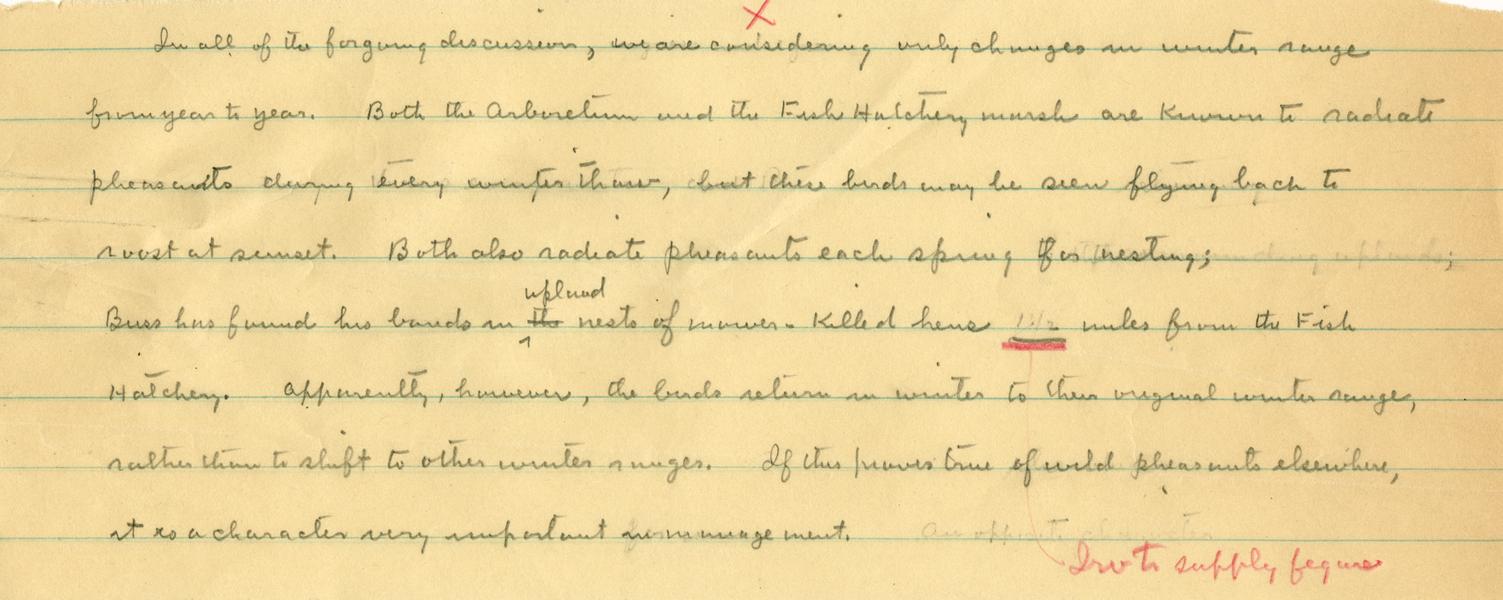 X
In all of the forgoing discussion, we are considering only changes in winter range
from year to year. Both the Arboretum and the Fish Hatchery marsh are known to radiate
pheasants during every winter thaw, but these birds may be seen flying back to
roost at sunset. Both also radiate pheasants each spring for nesting;
upland
Buss has found his bands in the nests of mower-killed hens 1 1/2 miles from the Fish
Hatchery. Apparently, however, the birds return in winter to their original winter range,
rather than to shift to other winter ranges. If this proves true of wild pheasants elsewhere,
it is a character very important in management. An opposite character
Irv to supply figure